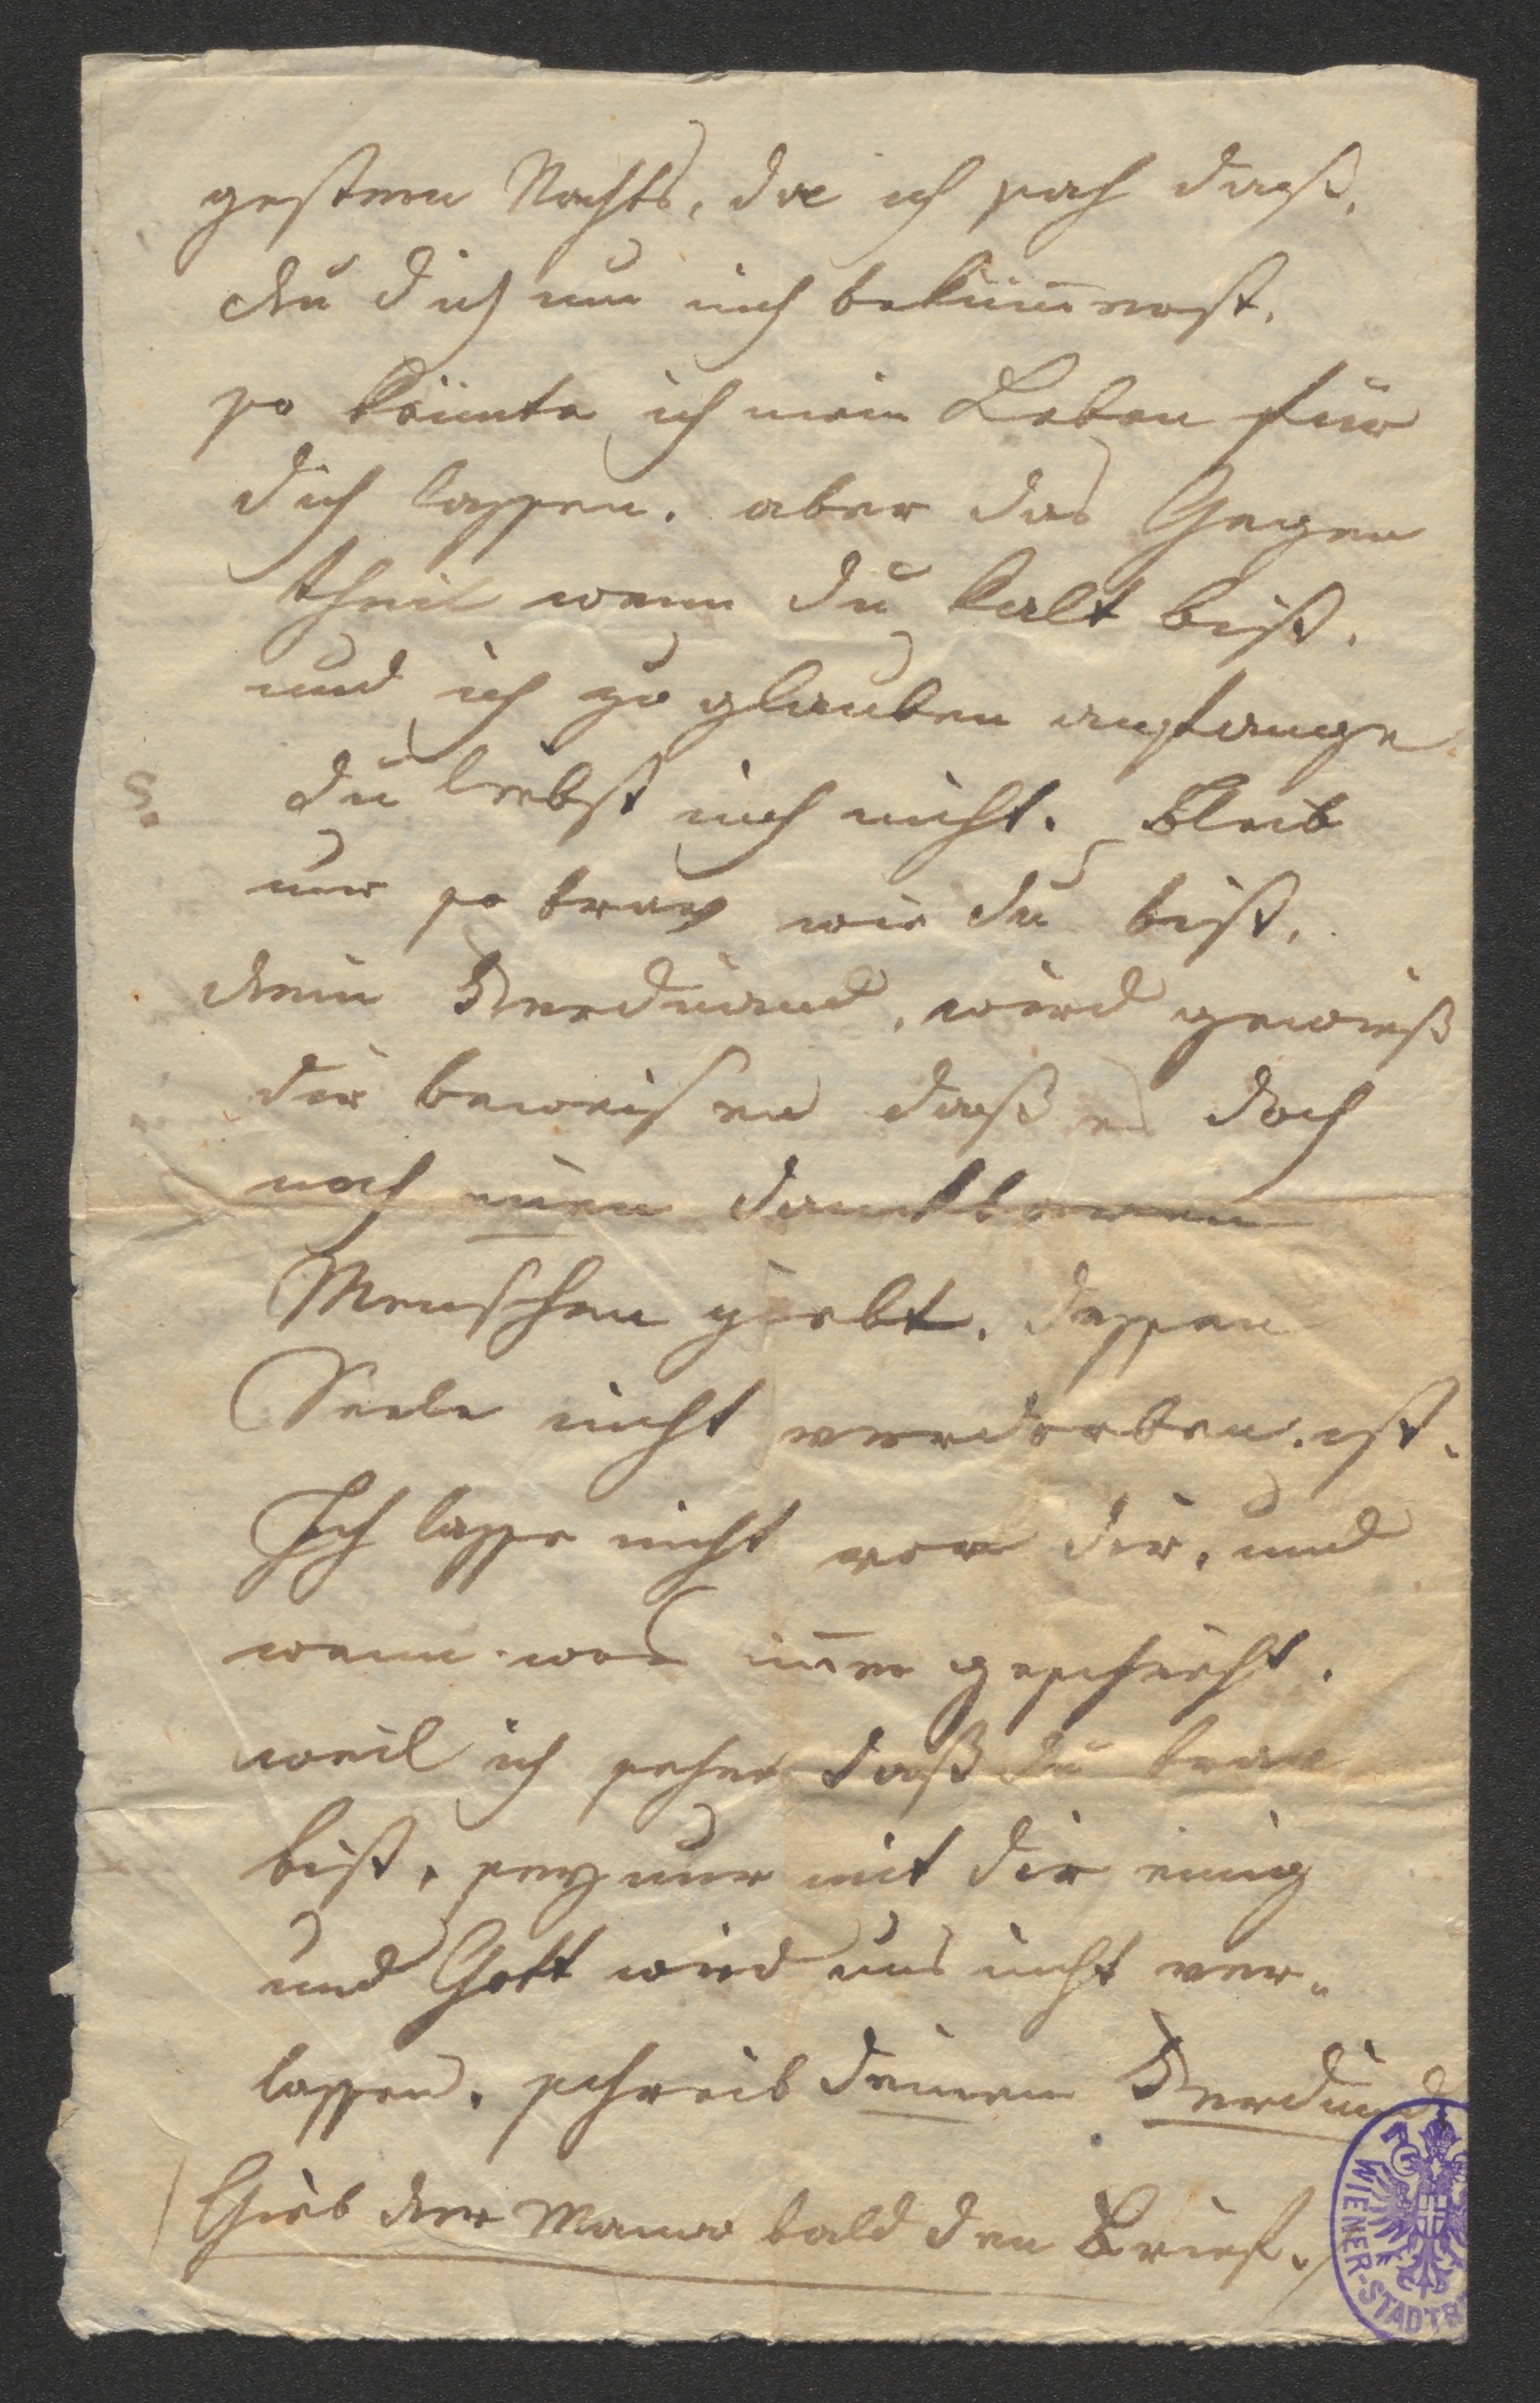 gestern Nachts, da ich sah daß,
du dich um mich bekümerst,
so könnte ich mein Leben für
dich lassen. aber das Gegen
theil wenn du kalt bist.
und ich zu glauben anfange
du liebst mich nicht. Bleib
nur so brav wie du bist,
dein Ferdinand, wird gewiß
dir beweisen daß es doch
noch einen dankbaren
Menschen giebt. dessen
Seele nicht verdorben ist.
Ich lasse nicht von dir, und
wenn was im̄er geschieht.
weil ich sehe daß du brav
bist, sey nur mit dir einig
und Gott wird uns nicht ver-
lassen. schreib deinem Ferdinand
/ Gieb der Mama bald den Brief. /
WIENER-STADTB